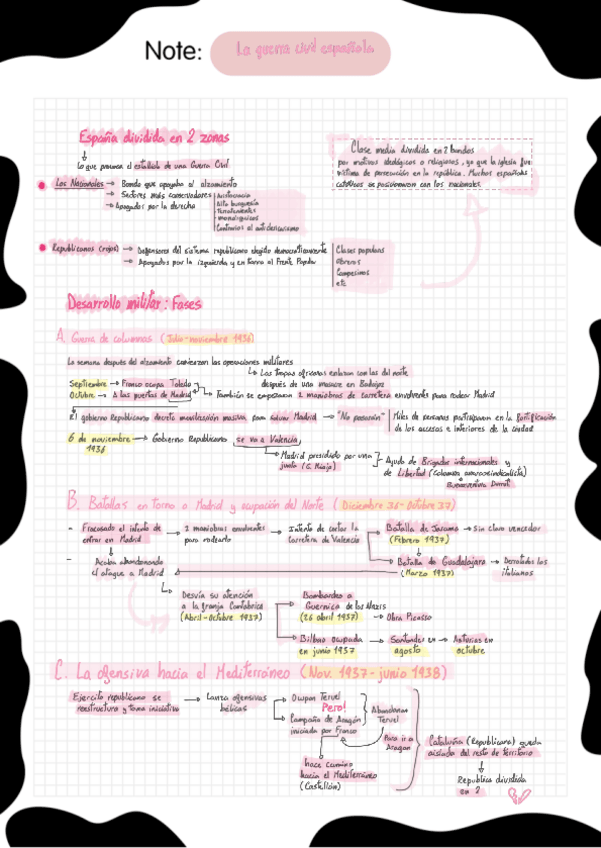 Note:
La guerra civil española
España dividida en 2 zonas
Lo que provoca el estallido de una Guerra Civil
Los Nacionales → Bando que apoyaba al alzamiento
→ Sectores más conservadores
→ Apoyados por la derecha
Aristocracia
Alta burguesía
Terratenientes
monárquicos
Contrarios al anticlericarismo
Clase media dividida en 2 bandos
por motivos ideológicos o religiosos, ya que la iglesia fue
víctima de persecución en la república. Muchos españoles
católicos se posicionaron con los nacionales.
Republicanos (rojos) → Defensores del sistema republicano elegido democráticamente
→ Apoyados por la izquierda y en torno al Frente Popular
Clases populares
Obreros
Campesinos
etc
Desarrollo militar: Fases
A. Guerra de columnas (Julio-noviembre 1936)
La semana después del alzamiento comienzan las operaciones militares
↳ Las tropas africanas enlazan con las del norte
después de una masacre en Badajoz
Septiembre → Franco ocupa Toledo
Octubre → A las puertas de Madrid
→ También se empezaron 2 maniobras de carretera envolventes para rodear Madrid
El gobierno Republicano decreta movilización masiva para salvar Madrid → "No pasarán"
Miles de personas participaron en la fortificación
de los accesos e interiores de la ciudad
6 de noviembre → Gobierno Republicano se va a Valencia
1936
→ Madrid presidido por una
junta (G. Miaja)
Ayuda de Brigadas internacionales y
de Libertad (Columna anarcosindicalista)
Buenaventura Durruti
B. Batallas en torno a Madrid y ocupación del Norte (Diciembre 36-Octubre 37)
- Fracasado el intento de
entrar en Madrid
→ 2 maniobras envolventes
para rodearlo
→ Intento de cortar la
carretera de Valencia
→ Batalla de Jarama → Sin claro vencedor
(Febrero 1937)
→ Batalla de Guadalajara → Derrotados los
(Marzo 1937)
italianos
- Acaba abandonando
el ataque a Madrid
↳ Desvía su atención
a la franja Cantábrica
(Abril-Octubre 1937)
→ Bombardeo a
Guernica de los Nazis
(26 abril 1937) → Obra Picasso
→ Bilbao ocupada
en junio 1937
→ Santander en
agosto
→ Asturias en
octubre
C. La ofensiva hacia el Mediterráneo (Nov. 1937-junio 1938)
Ejercito republicano se
reestructura y toma iniciativa
→ Lanza ofensivas
bélicas
→ Ocupan Teruel
Pero!
→ Campaña de Aragón
iniciada por Franco
Abandonan
Teruel
Para ir a
Aragon
hace camino
hacia el Mediterráneo
(Castellón)
Cataluña (Republicana) queda
aislada del resto de territorio
República dividida
en 2